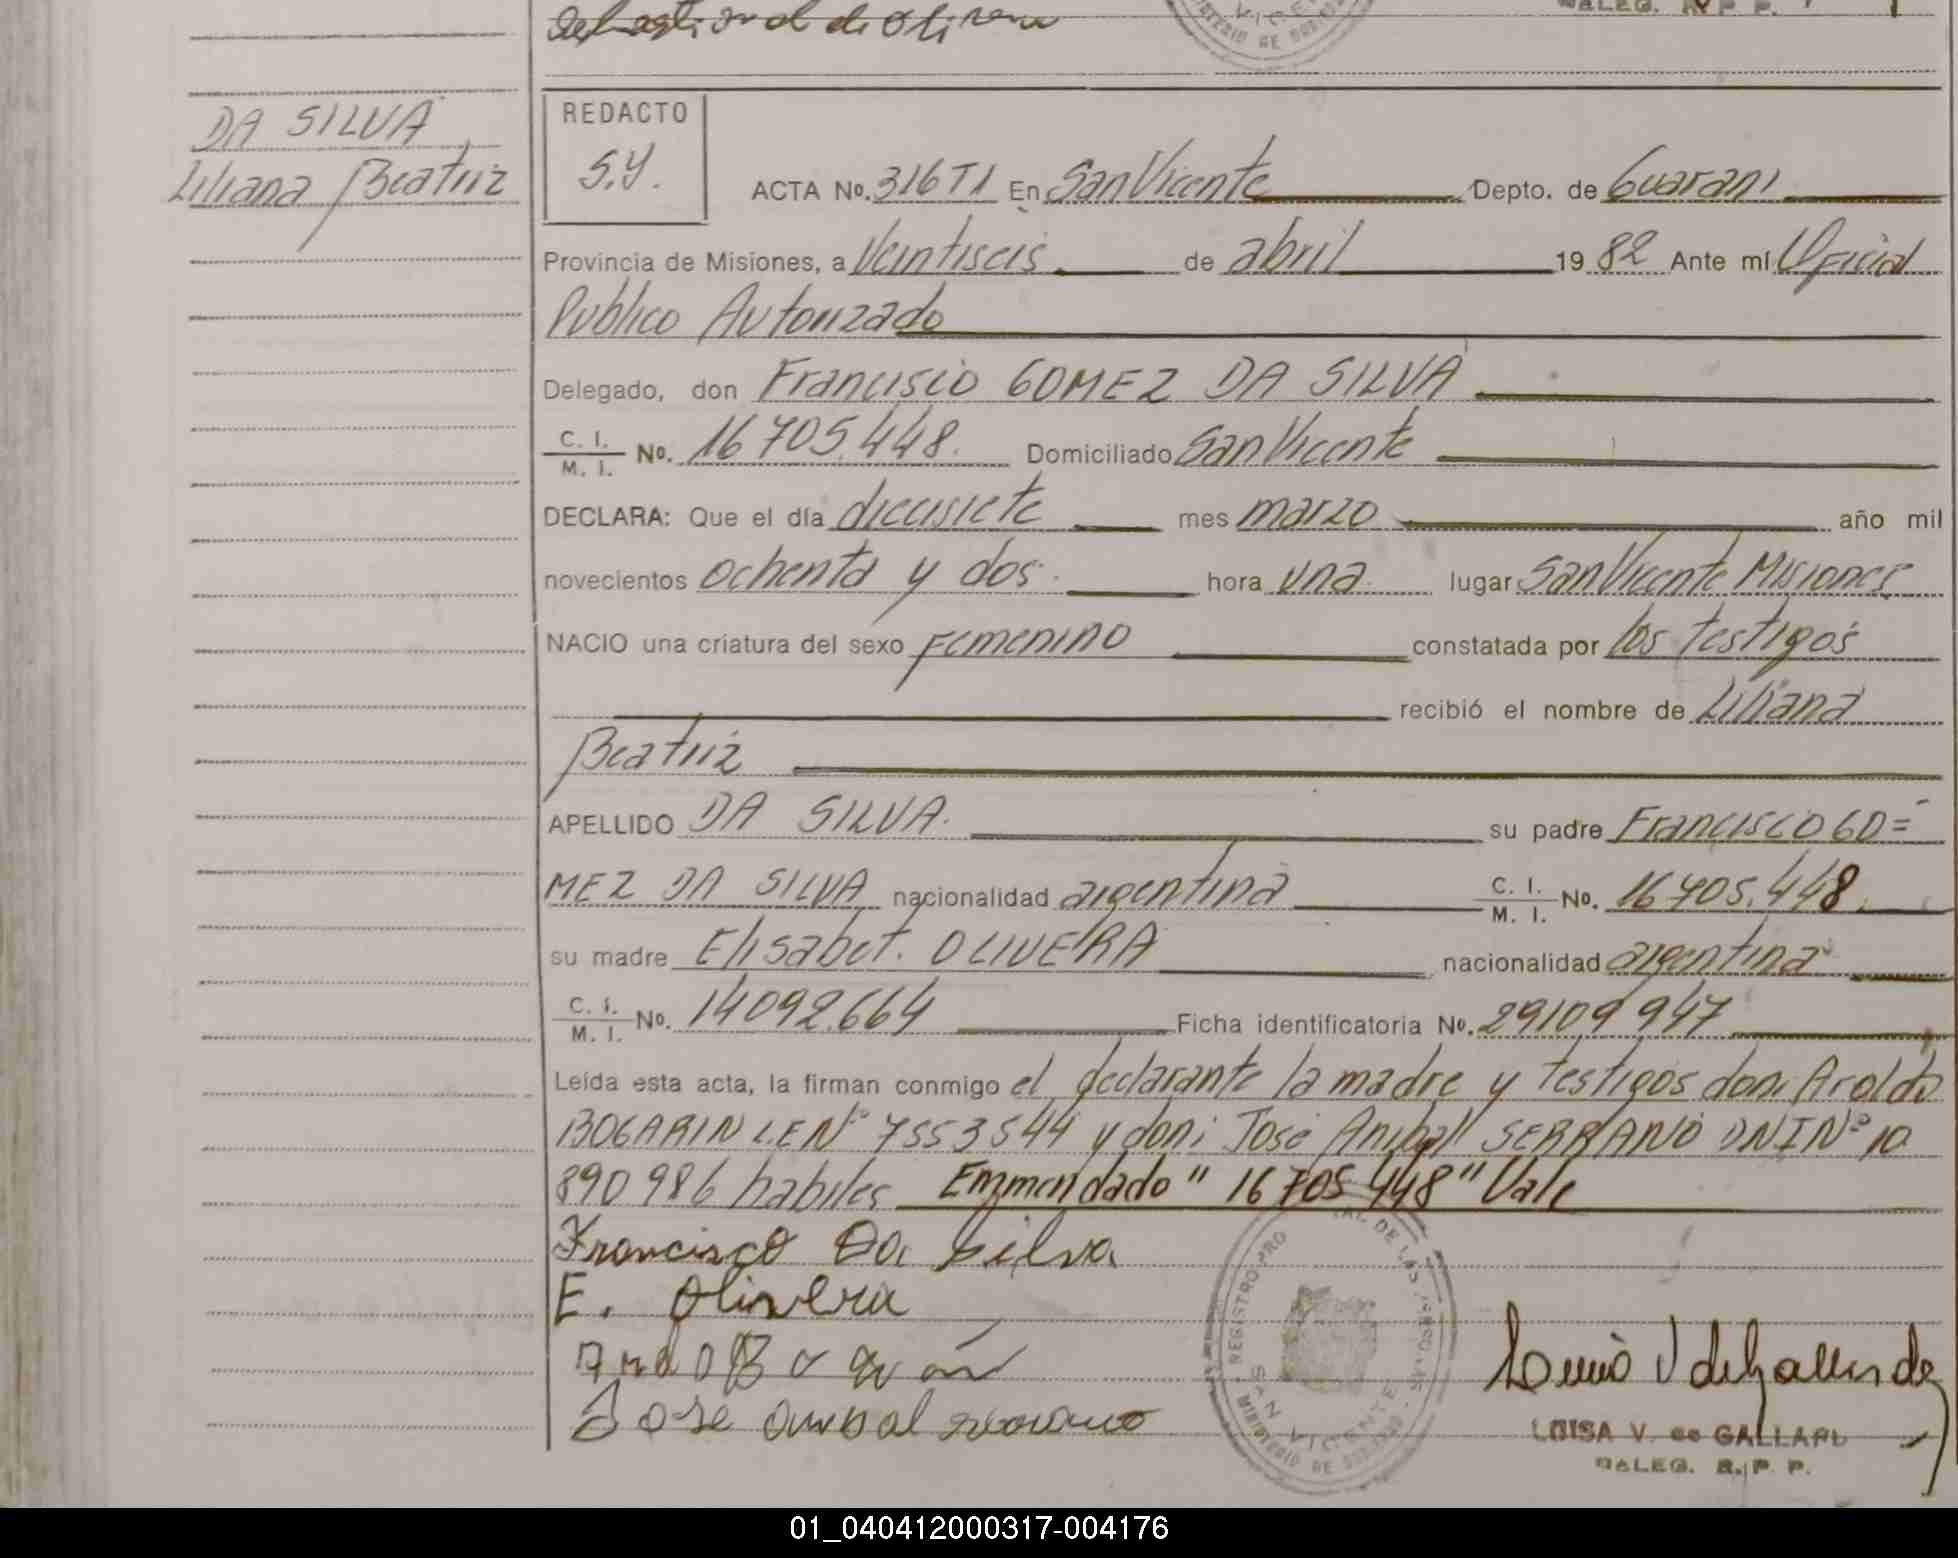 de Olivera
DALEG. R. P. P.
DA SILVA
Liliana Beatriz
REDACTO
S.Y.
ACTA No. 316 T1 En San Vicente Depto. de Guarani
Provincia de Misiones, a Veintiseis de abril 19 82 Ante mí Oficial
Publico Autorizado
Delegado, don Francisco GOMEZ DA SILVA
C. I. / M. I. No. 16705.448. Domiciliado San Vicente
DECLARA: Que el día diecisiete mes marzo año mil
novecientos ochenta y dos. hora una lugar San Vicente Misiones
NACIO una criatura del sexo Femenino constatada por los testigos
recibió el nombre de Liliana
Beatriz
APELLIDO DA SILVA. su padre Francisco GO=
MEZ DA SILVA nacionalidad argentina C. I. / M. I. No. 16705.448.
su madre Elisabet. OLIVERA nacionalidad argentina
C. I. / M. I. No. 14092.664 Ficha identificatoria No. 29109947
Leída esta acta, la firman conmigo el declarante la madre y testigos don: Aroldo
BOGARIN L.E Nº 7553544 y don: José Anibal SERRANO DNI Nº 10
890986 habiles Enmendado "16705448" Vale
Francisco Da Silva
E. Olivera
Jose anibal serrano
REGISTRO PRO AL DE LAS PERSONAS
SAN VICENTE
MINISTERIO DE GOBIERNO
LUISA V. de GALLAR
DALEG. R. P. P.
01_040412000317-004176